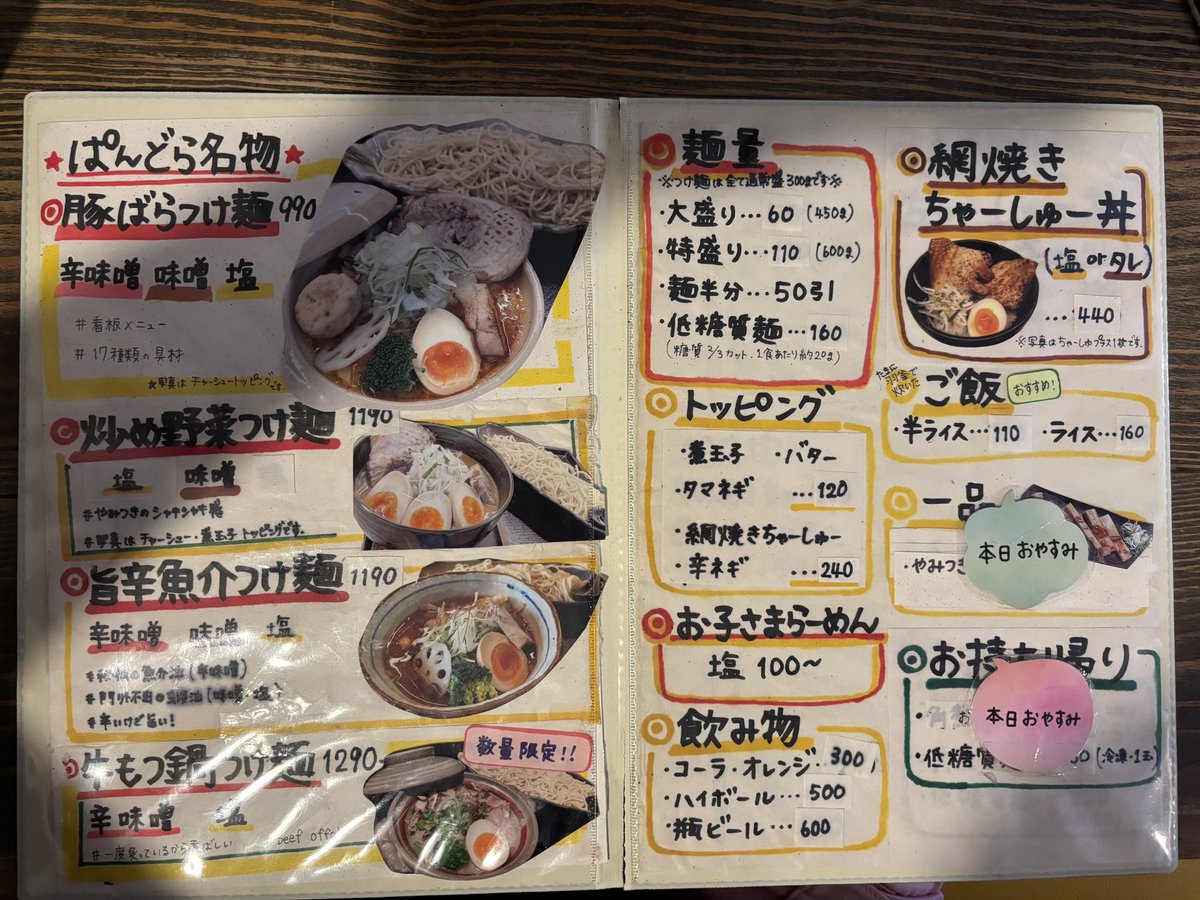 ぱんどら名物
豚ばらつけ麺 990
辛味噌 味噌 塩
#看板メニュー
#17種類の具材
★写真はチャーシュートッピングです。
炒め野菜つけ麺 1190
塩 味噌
#やみつきのシャキシャキ感
#写真はチャーシュー・煮玉子トッピングです。
旨辛魚介つけ麺 1190
辛味噌 味噌 塩
の魚介油(辛味噌)
#辛いけど旨い!
牛もつ鍋つけ麺 1290
数量限定!!
辛味噌 塩
beef offal
#一度炙っているから香ばしい
麺量
※つけ麺は全て通常盛300gです※
・大盛り…60(450g)
・特盛り…110(600g)
・麺半分…50引
・低糖質麺…160
(糖質2/3カット、1食あたり約20g)
トッピング
・煮玉子 ・バター
・タマネギ …120
・網焼きちゃーしゅー
・辛ネギ …240
お子さまらーめん
塩 100~
飲み物
・コーラ・オレンジ…300
・ハイボール…500
・瓶ビール…600
網焼き
ちゃーしゅー丼
(塩 or タレ)
…440
※写真はちゃーしゅプラス1枚です。
たまに羽釜で炊いた
ご飯 おすすめ!
・半ライス…110 ・ライス…160
一品
・やみつき
本日おやすみ
お持ち帰り
本日おやすみ
・低糖質 (冷凍・1玉)